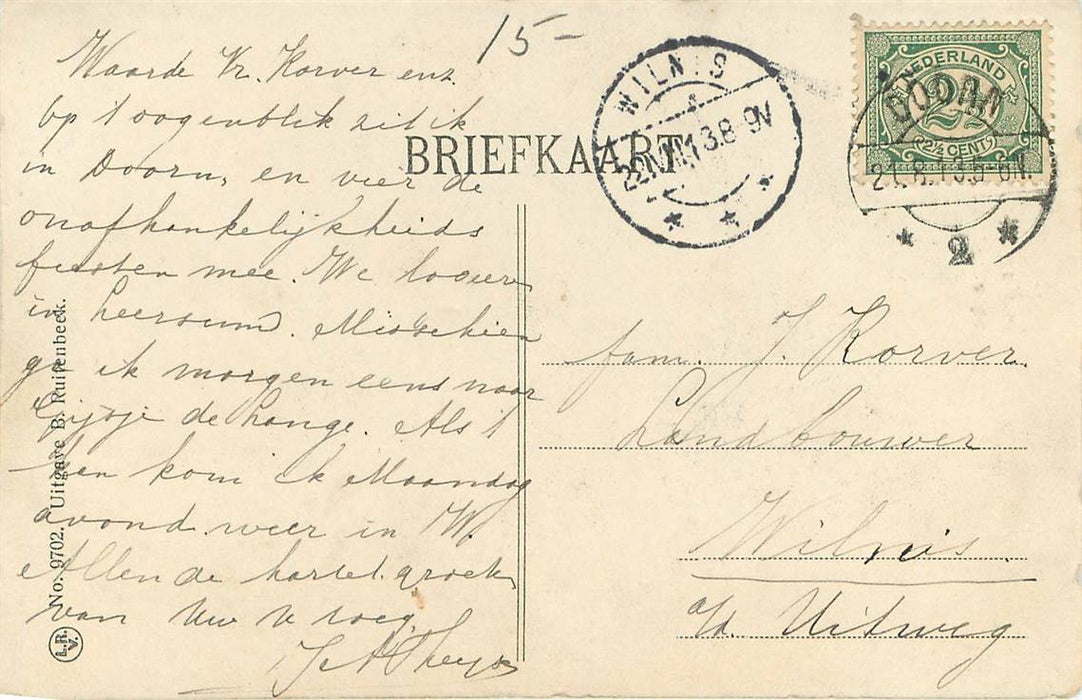 15-
Waarde Vr. Korver enz.
Op 't oogenblik zit ik
in Doorn, en vier de
onafhankelijkheids
feesten mee. We logeren
in Leersum. Misschien
ga ik morgen eens naar
de Lange. Als 't
kan kom ik Maandag
avond weer in W.
Allen de hartel. groet
van Uw
BRIEFKAART
WILNIS
NEDERLAND
2½
(2½ CENT)
DOORN
21.8.13.5-6N.
2
fam. J. Korver
Landbouwer
Wilnis
a/d. Uitweg
No. 9702. Uitgave B. Ruitenbeek.
L.R.
V.